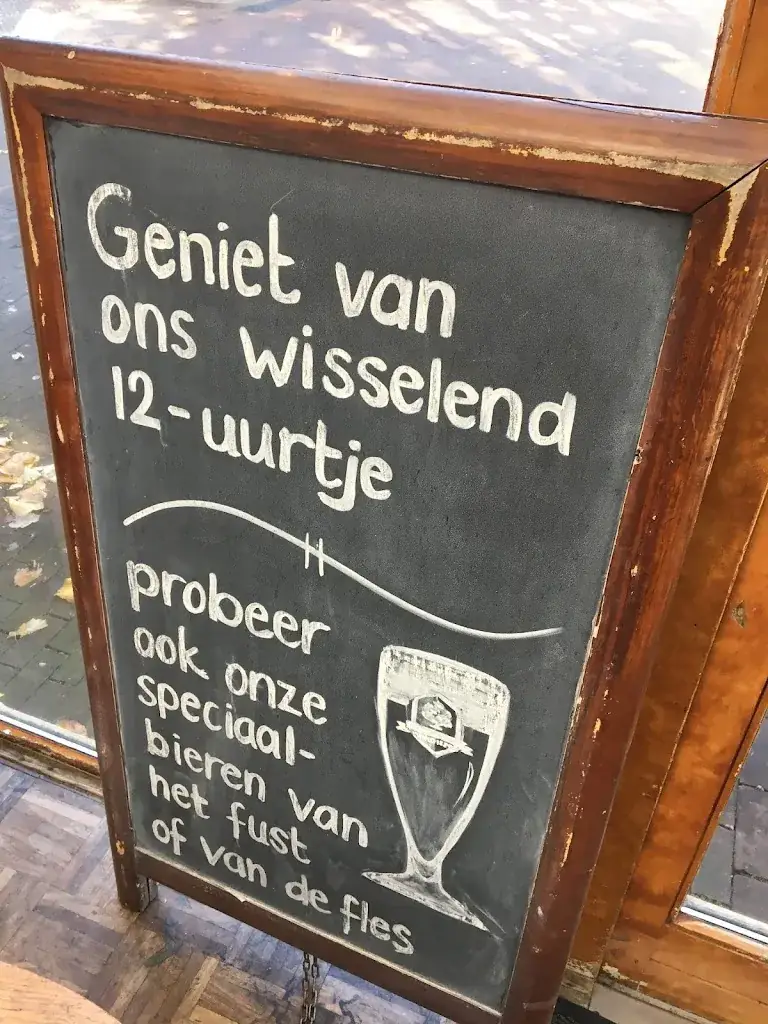 Geniet van
ons wisselend
12-uurtje
probeer
ook onze
speciaal-
bieren van
het fust
of van de fles